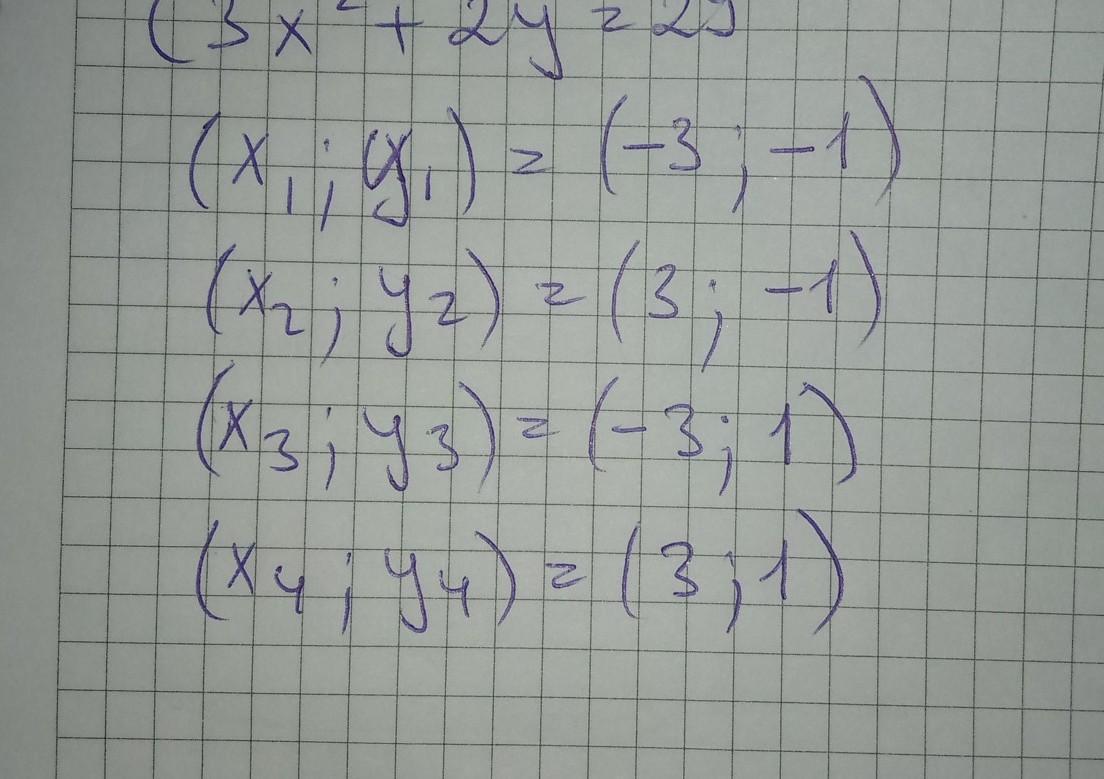 (3x² + 2y = 29
(x₁; y₁) = (-3; -1)
(x₂; y₂) = (3; -1)
(x₃; y₃) = (-3; 1)
(x₄; y₄) = (3; 1)